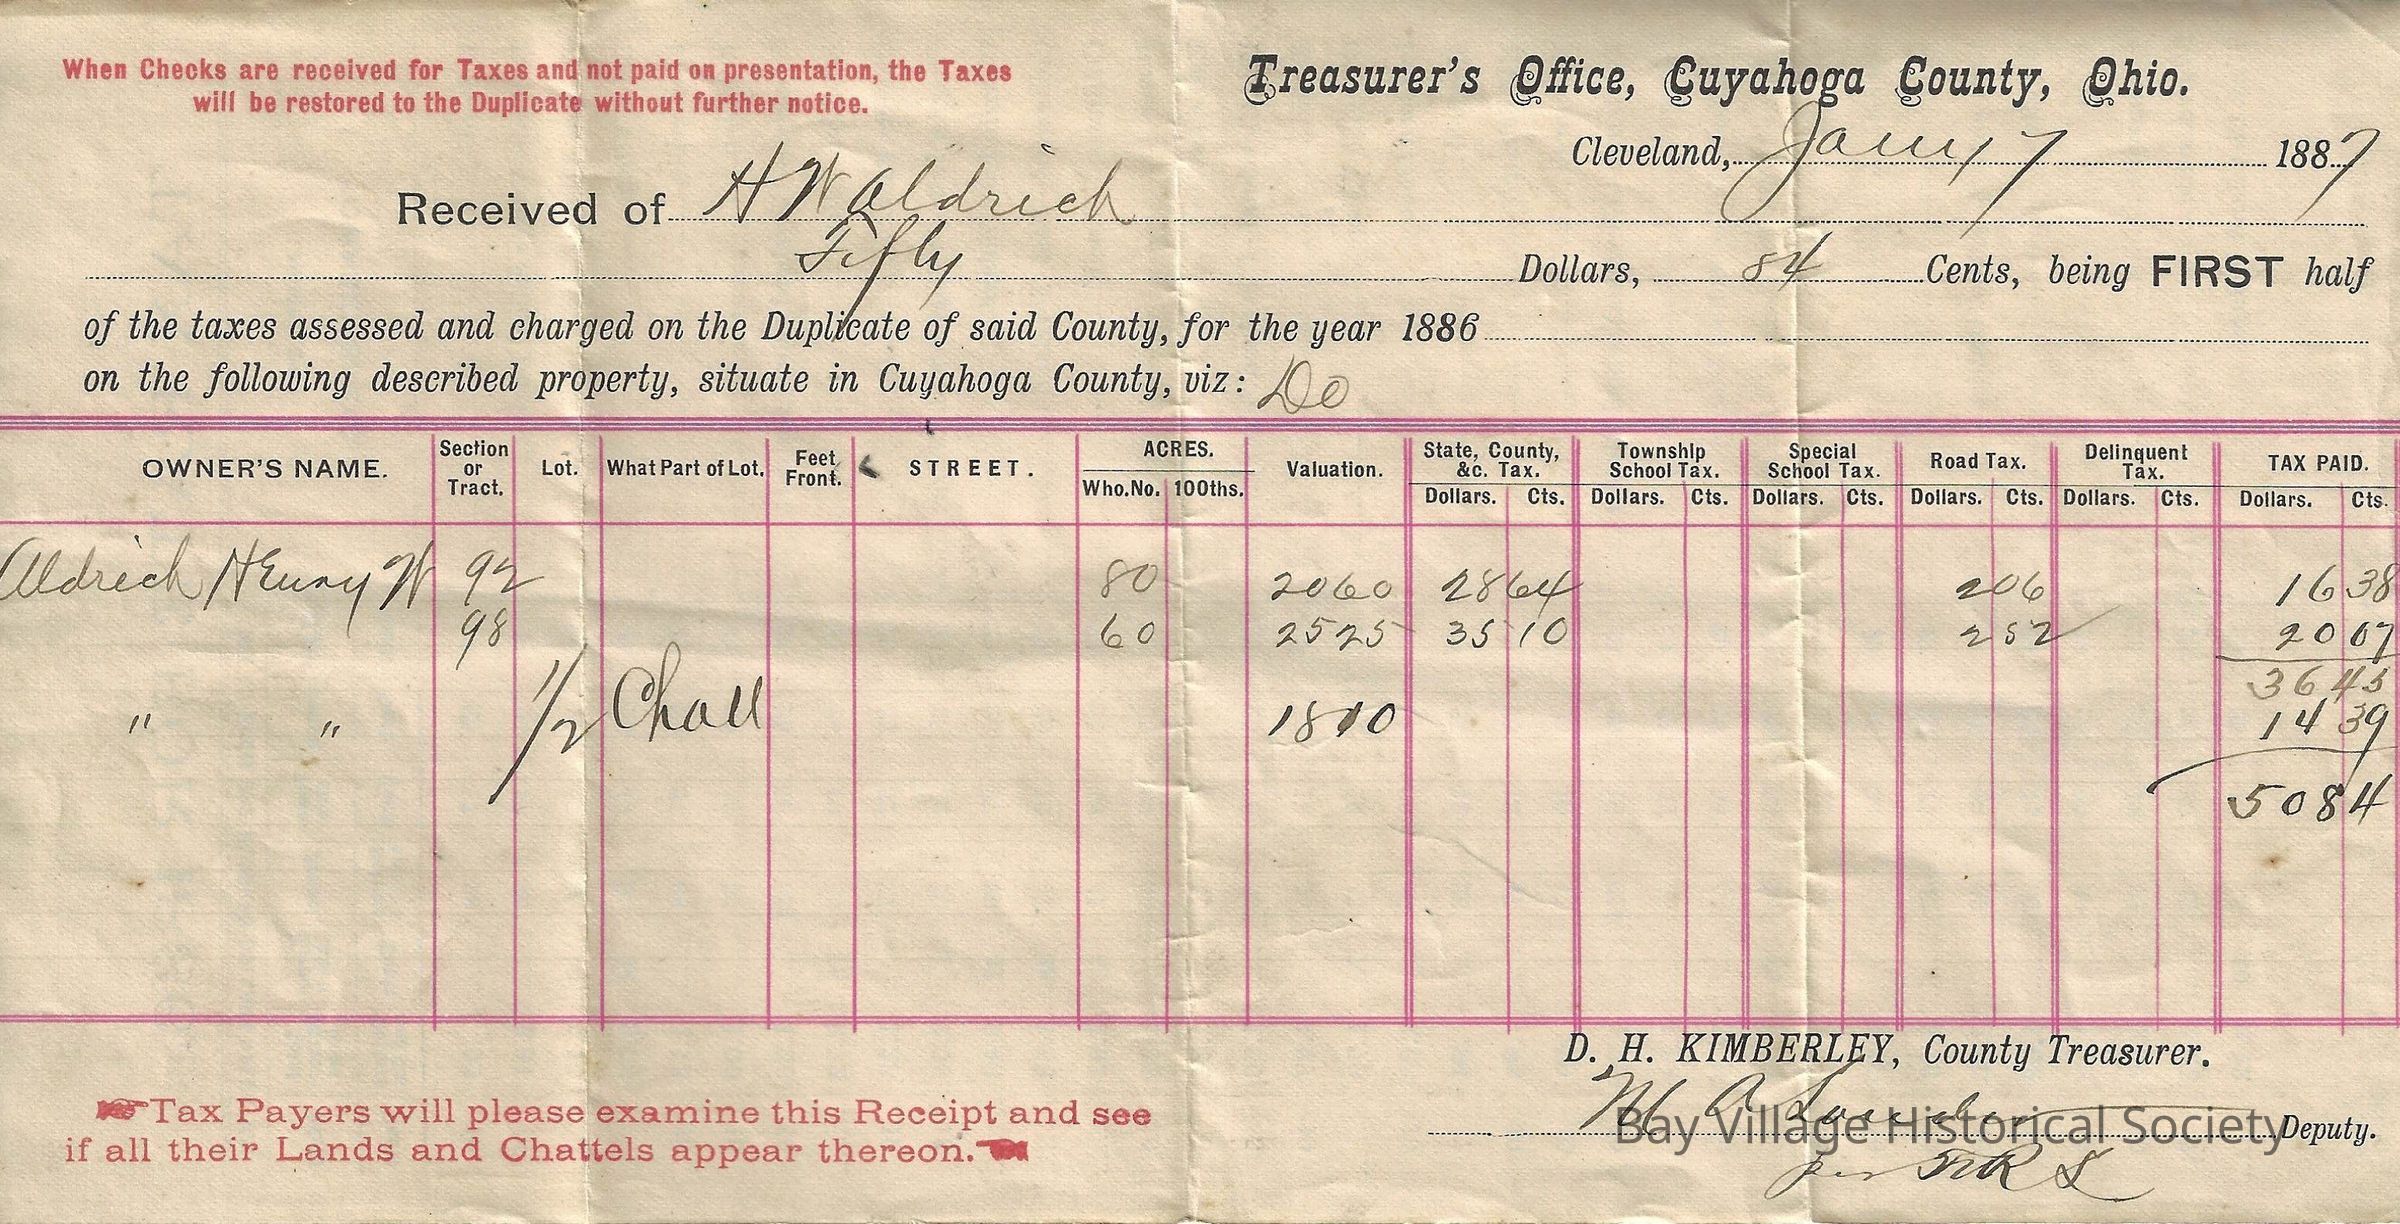 When Checks are received for Taxes and not paid on presentation, the Taxes
will be restored to the Duplicate without further notice.
Treasurer's Office, Cuyahoga County, Ohio.
Cleveland, Jany 7 1887
Received of H W Aldrich
Fifty Dollars, 84 Cents, being FIRST half
of the taxes assessed and charged on the Duplicate of said County, for the year 1886
on the following described property, situate in Cuyahoga County, viz: Do
OWNER'S NAME. Section or Tract. Lot. What Part of Lot. Feet Front. STREET. ACRES. Who.No. 100ths. Valuation. State, County, &c. Tax. Dollars. Cts. Township School Tax. Dollars. Cts. Special School Tax. Dollars. Cts. Road Tax. Dollars. Cts. Delinquent Tax. Dollars. Cts. TAX PAID. Dollars. Cts.
Aldrich Henry W 92 80 2060 28 64 2 06 16 38
98 60 2525 35 10 2 52 20 07
36 45
" " 1/2 Chatl 1810 14 39
50 84
D. H. KIMBERLEY, County Treasurer.
M A Deputy.
per
Tax Payers will please examine this Receipt and see
if all their Lands and Chattels appear thereon.
Bay Village Historical Society